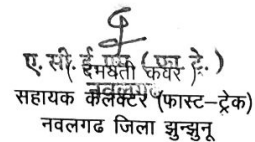 ए. सी. ई. एम (फा. ट्रे.)
( दमयंती कंवर )
नवलगढ
सहायक कलेक्टर (फास्ट-ट्रेक)
नवलगढ जिला झुन्झुनू